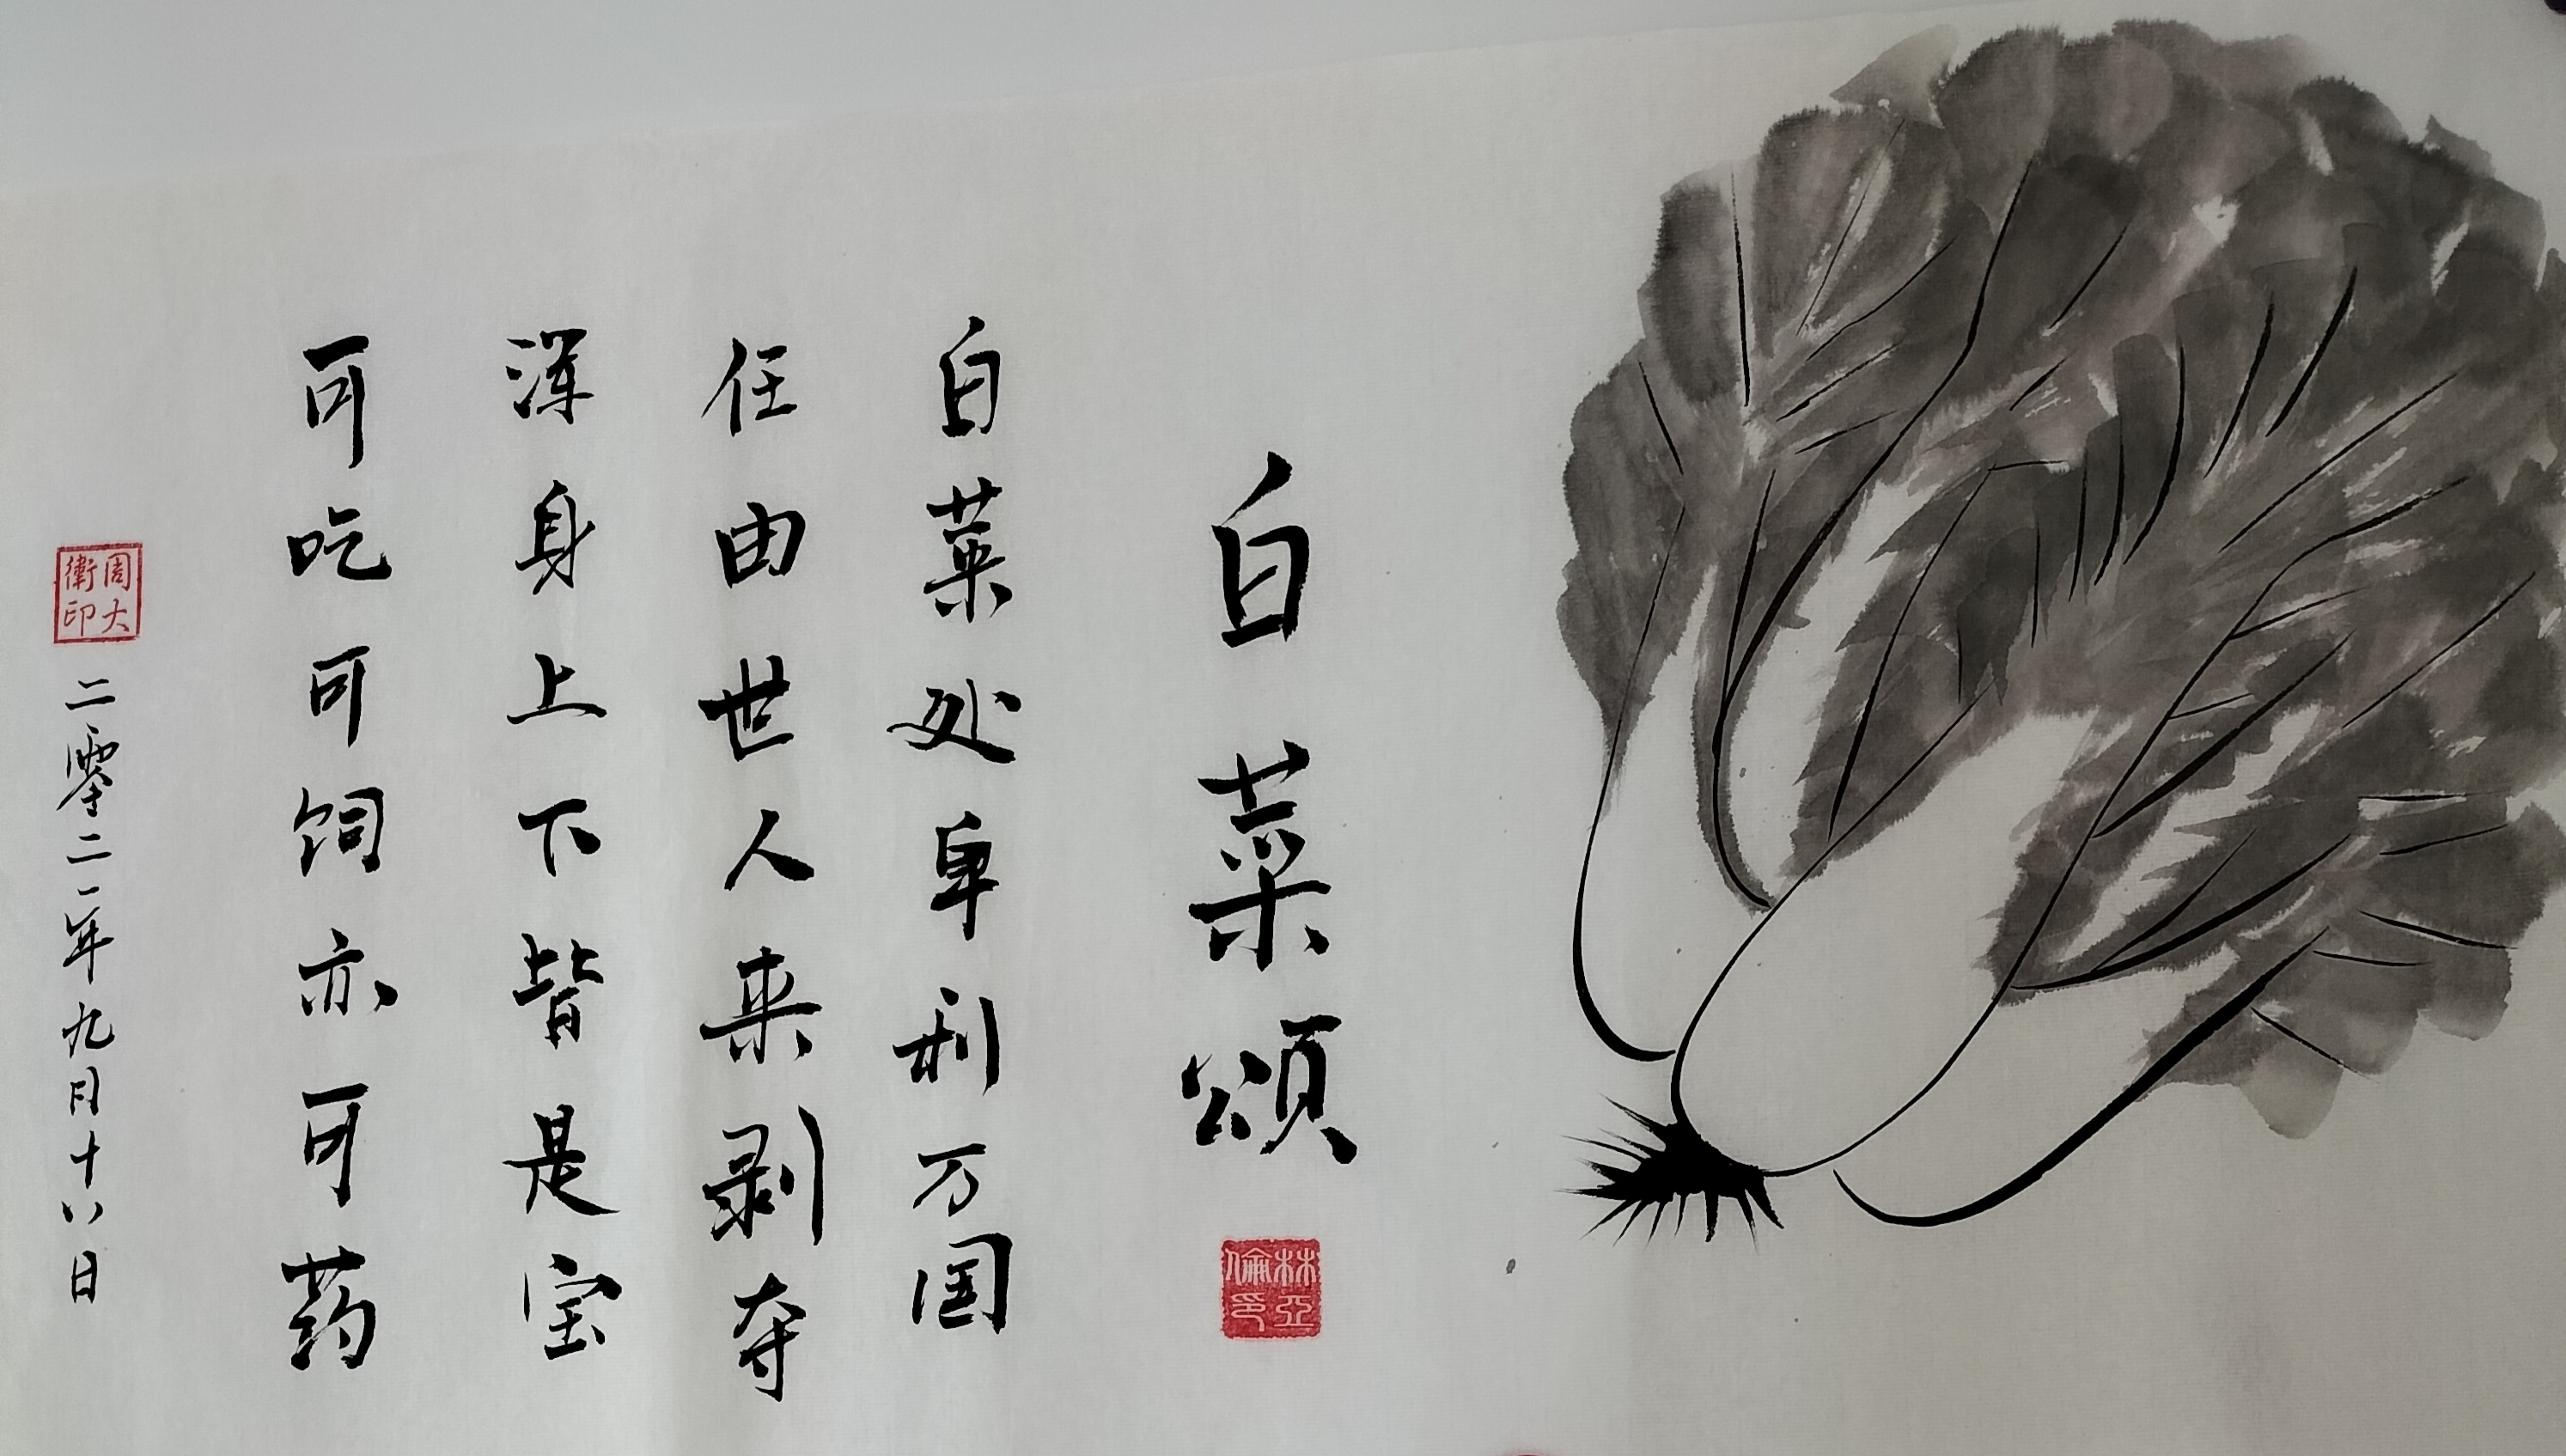 白菜颂
林亞倫印
白菜处卑利万国
任由世人来剥夺
浑身上下皆是宝
可吃可饲亦可药
周大衛印
二零二二年九月十八日